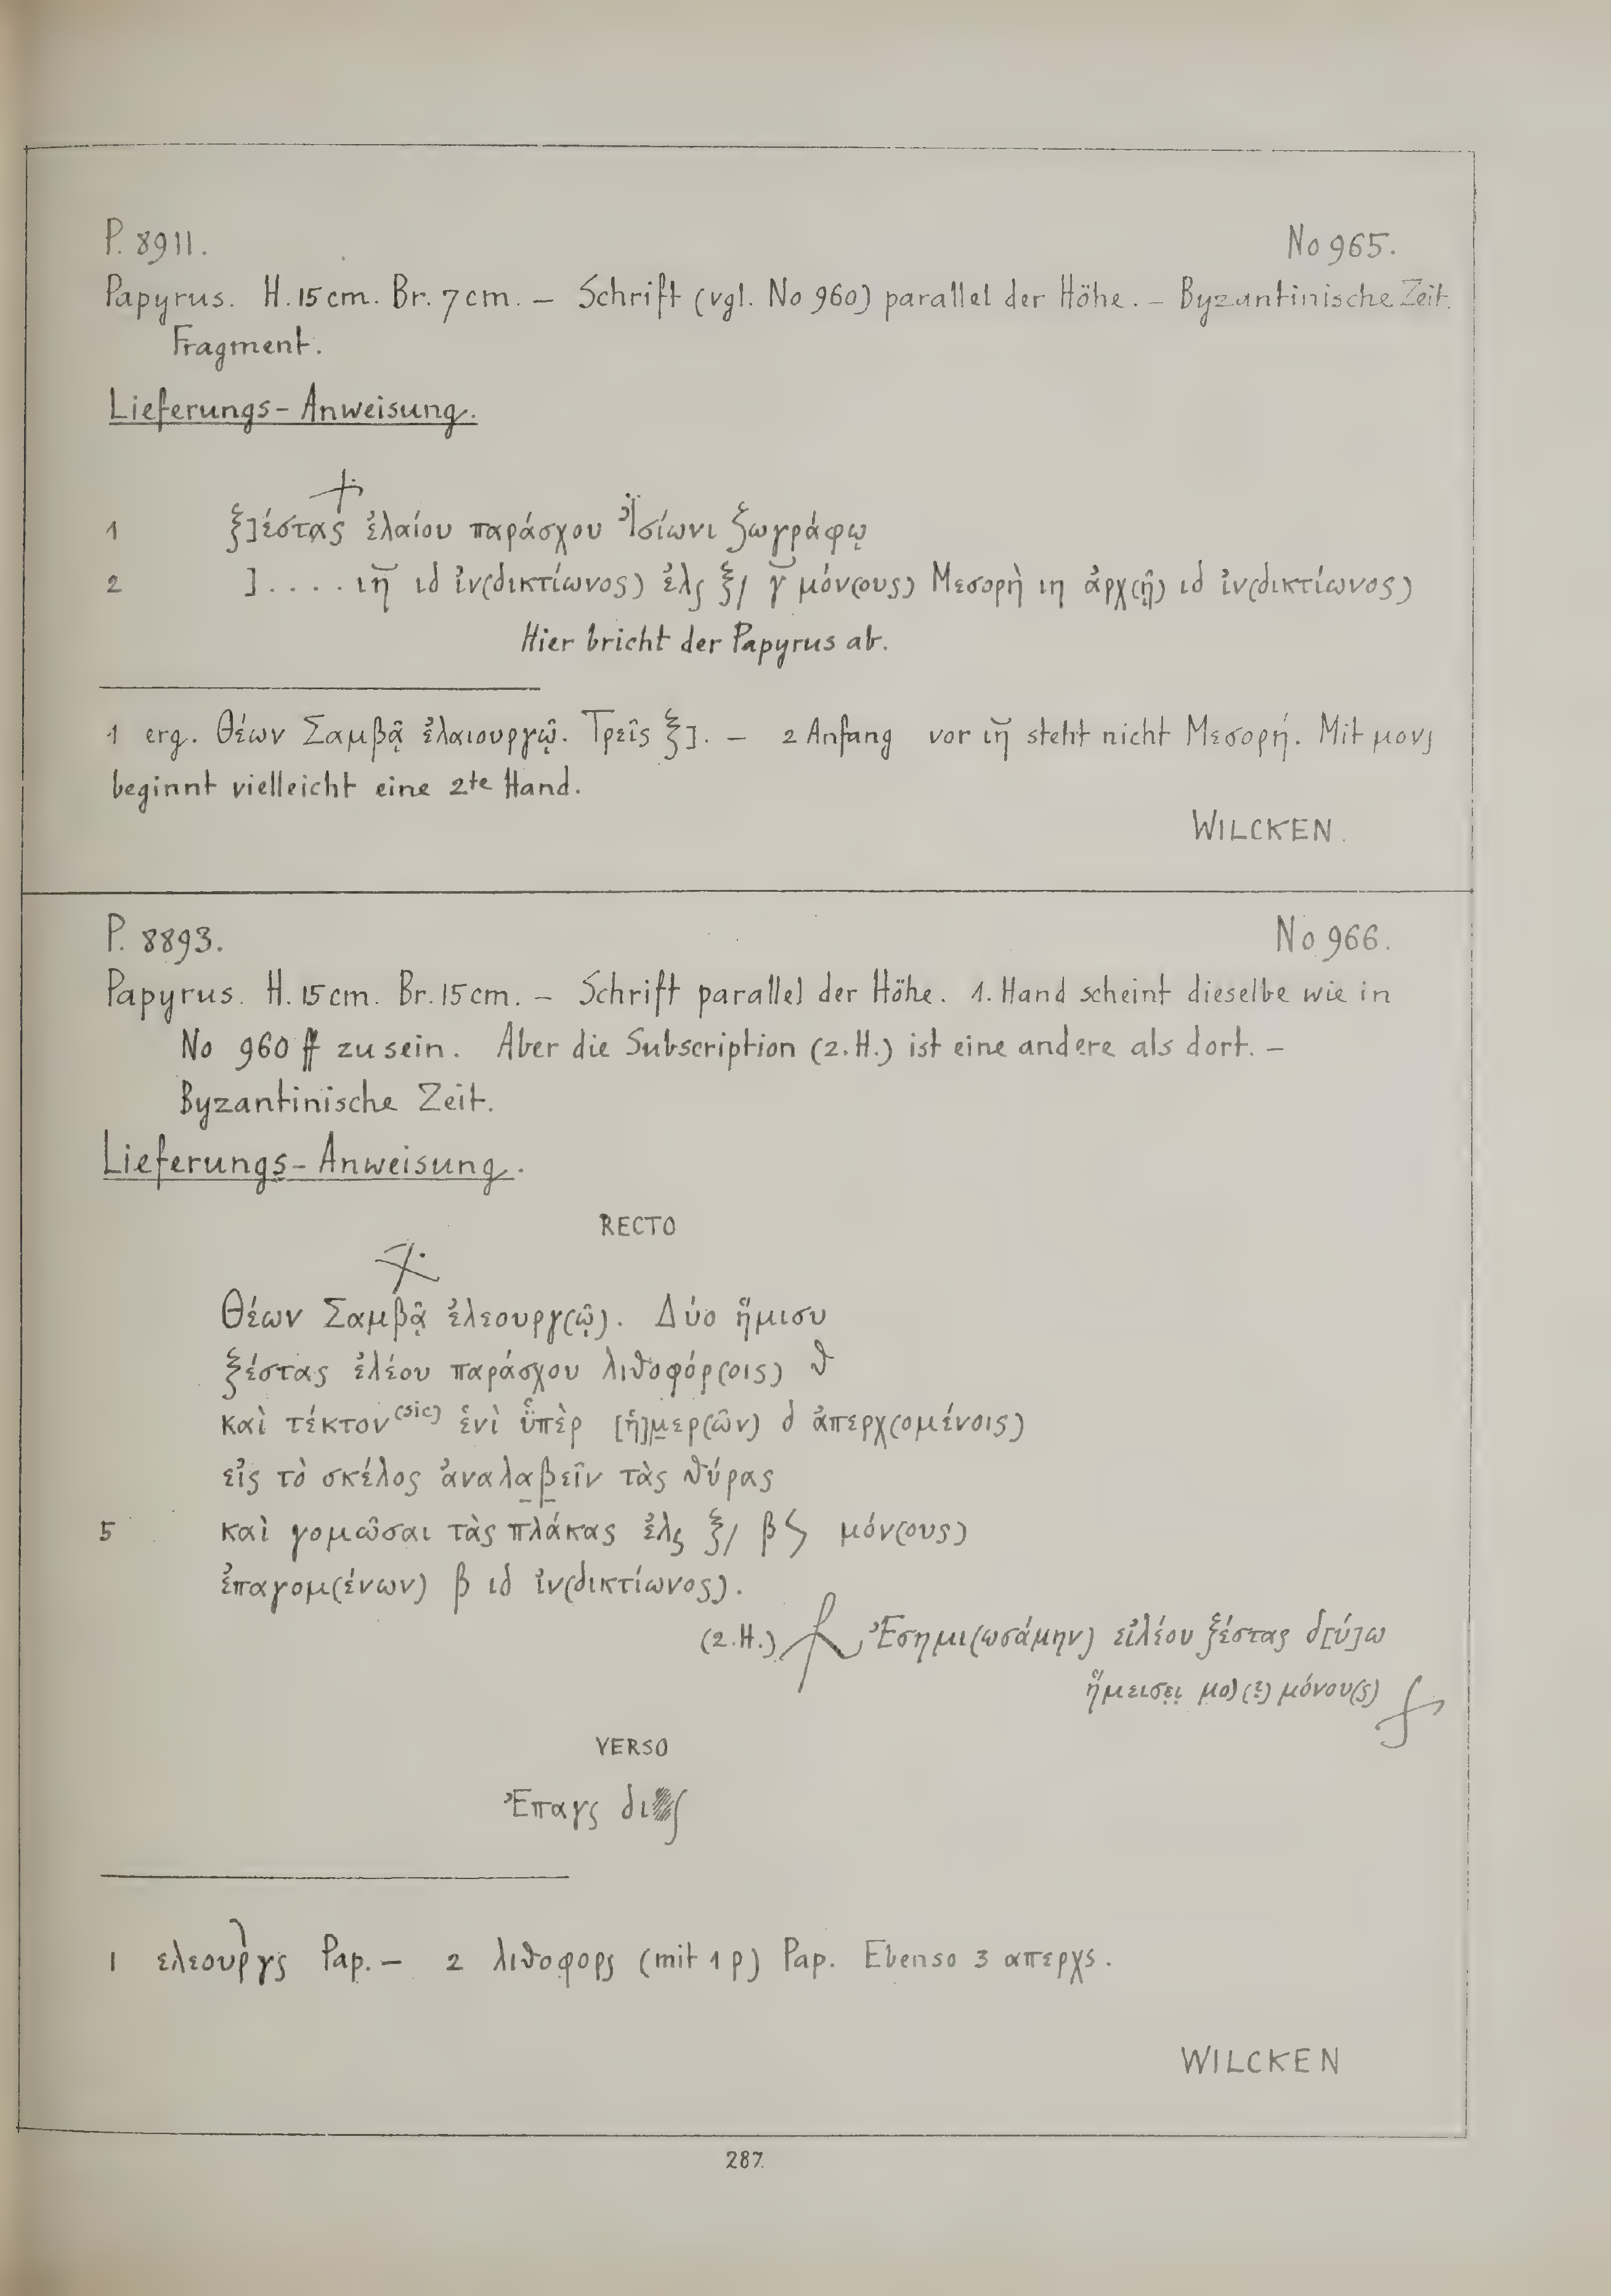 P. 8911. No 965.
Papyrus. H. 15 cm. Br. 7 cm. — Schrift (vgl. No 960) parallel der Höhe. — Byzantinische Zeit.
Fragment.
Lieferungs-Anweisung.
1 ξ]έστας ἐλαίου παράσχου Ἰσίωνι ζωγράφῳ
2 ] . . . . ιη ιδ ἰν(δικτίωνος) ἐλς ξ/ γ μόν(ους) Μεσορὴ ιη ἀρχ(ῇ) ιδ ἰν(δικτίωνος)
Hier bricht der Papyrus ab.
1 erg. Θέων Σαμβᾷ ἐλαιουργῷ. Τρεῖς ξ]. — 2 Anfang vor ιη steht nicht Μεσορή. Mit μονς
beginnt vielleicht eine 2te Hand.
WILCKEN.
P. 8893. No 966.
Papyrus. H. 15 cm. Br. 15 cm. — Schrift parallel der Höhe. 1. Hand scheint dieselbe wie in
No 960 ff zu sein. Aber die Subscription (2. H.) ist eine andere als dort. —
Byzantinische Zeit.
Lieferungs-Anweisung.
RECTO
Θέων Σαμβᾷ ἐλεουργ(ῷ). Δύο ἥμισυ
ξέστας ἐλέου παράσχου λιθοφόρ(οις) θ
καὶ τέκτον(sic) ἑνὶ ὑπὲρ [ἡ]μερ(ῶν) δ ἀπερχ(ομένοις)
εἰς τὸ σκέλος ἀναλαβεῖν τὰς θύρας
5 καὶ γομῶσαι τὰς πλάκας ἐλς ξ/ β ϛ μόν(ους)
ἐπαγομ(ένων) β ιδ ἰν(δικτίωνος).
(2. H.) Ἐσημι(ωσάμην) εἰλέου ξέστας δ[ύ]ω
ἥμεισει μο) (ξ) μόνου(ς)
VERSO
Ἐπαγς
1 ελεουργς Pap. — 2 λιθοφορς (mit 1 ρ) Pap. Ebenso 3 απερχς.
WILCKEN
287.